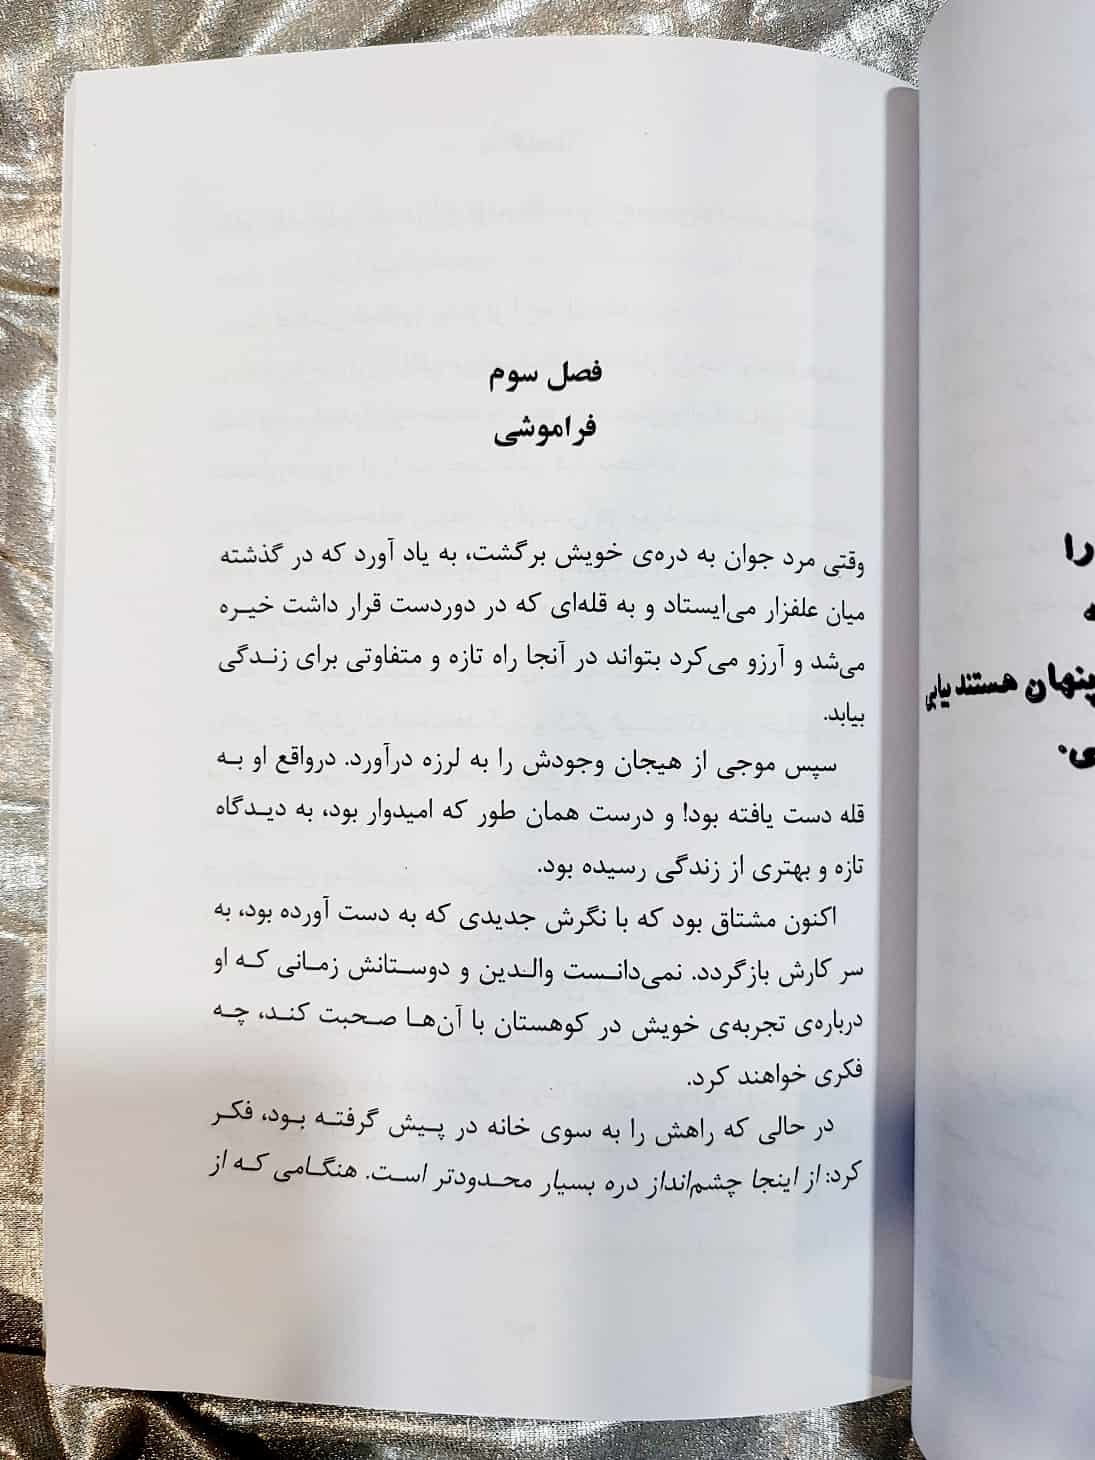 فصل سوم
فراموشی
وقتی مرد جوان به دره‌ی خویش برگشت، به یاد آورد که در گذشته
میان علفزار می‌ایستاد و به قله‌ای که در دوردست قرار داشت خیـره
می‌شد و آرزو می‌کرد بتواند در آنجا راه تازه و متفاوتی برای زنـدگی
بیابد.
سپس موجی از هیجان وجودش را به لرزه درآورد. درواقع او بـه
قله دست یافته بود! و درست همان طور که امیدوار بود، به دیـدگاه
تازه و بهتری از زندگی رسیده بود.
اکنون مشتاق بود که با نگرش جدیدی که به دست آورده بود، به
سر کارش بازگردد. نمی‌دانـست والـدین و دوسـتانش زمـانی کـه او
درباره‌ی تجربه‌ی خویش در کوهستان با آن‌هـا صـحبت کنـد، چـه
فکری خواهند کرد.
در حالی که راهش را به سوی خانه در پـیش گرفتـه بـود، فکـر
کرد: از اینجا چشم‌انداز دره بسیار محـدودتر اسـت. هنگـامی کـه از
را
پنهان هستند بیابی